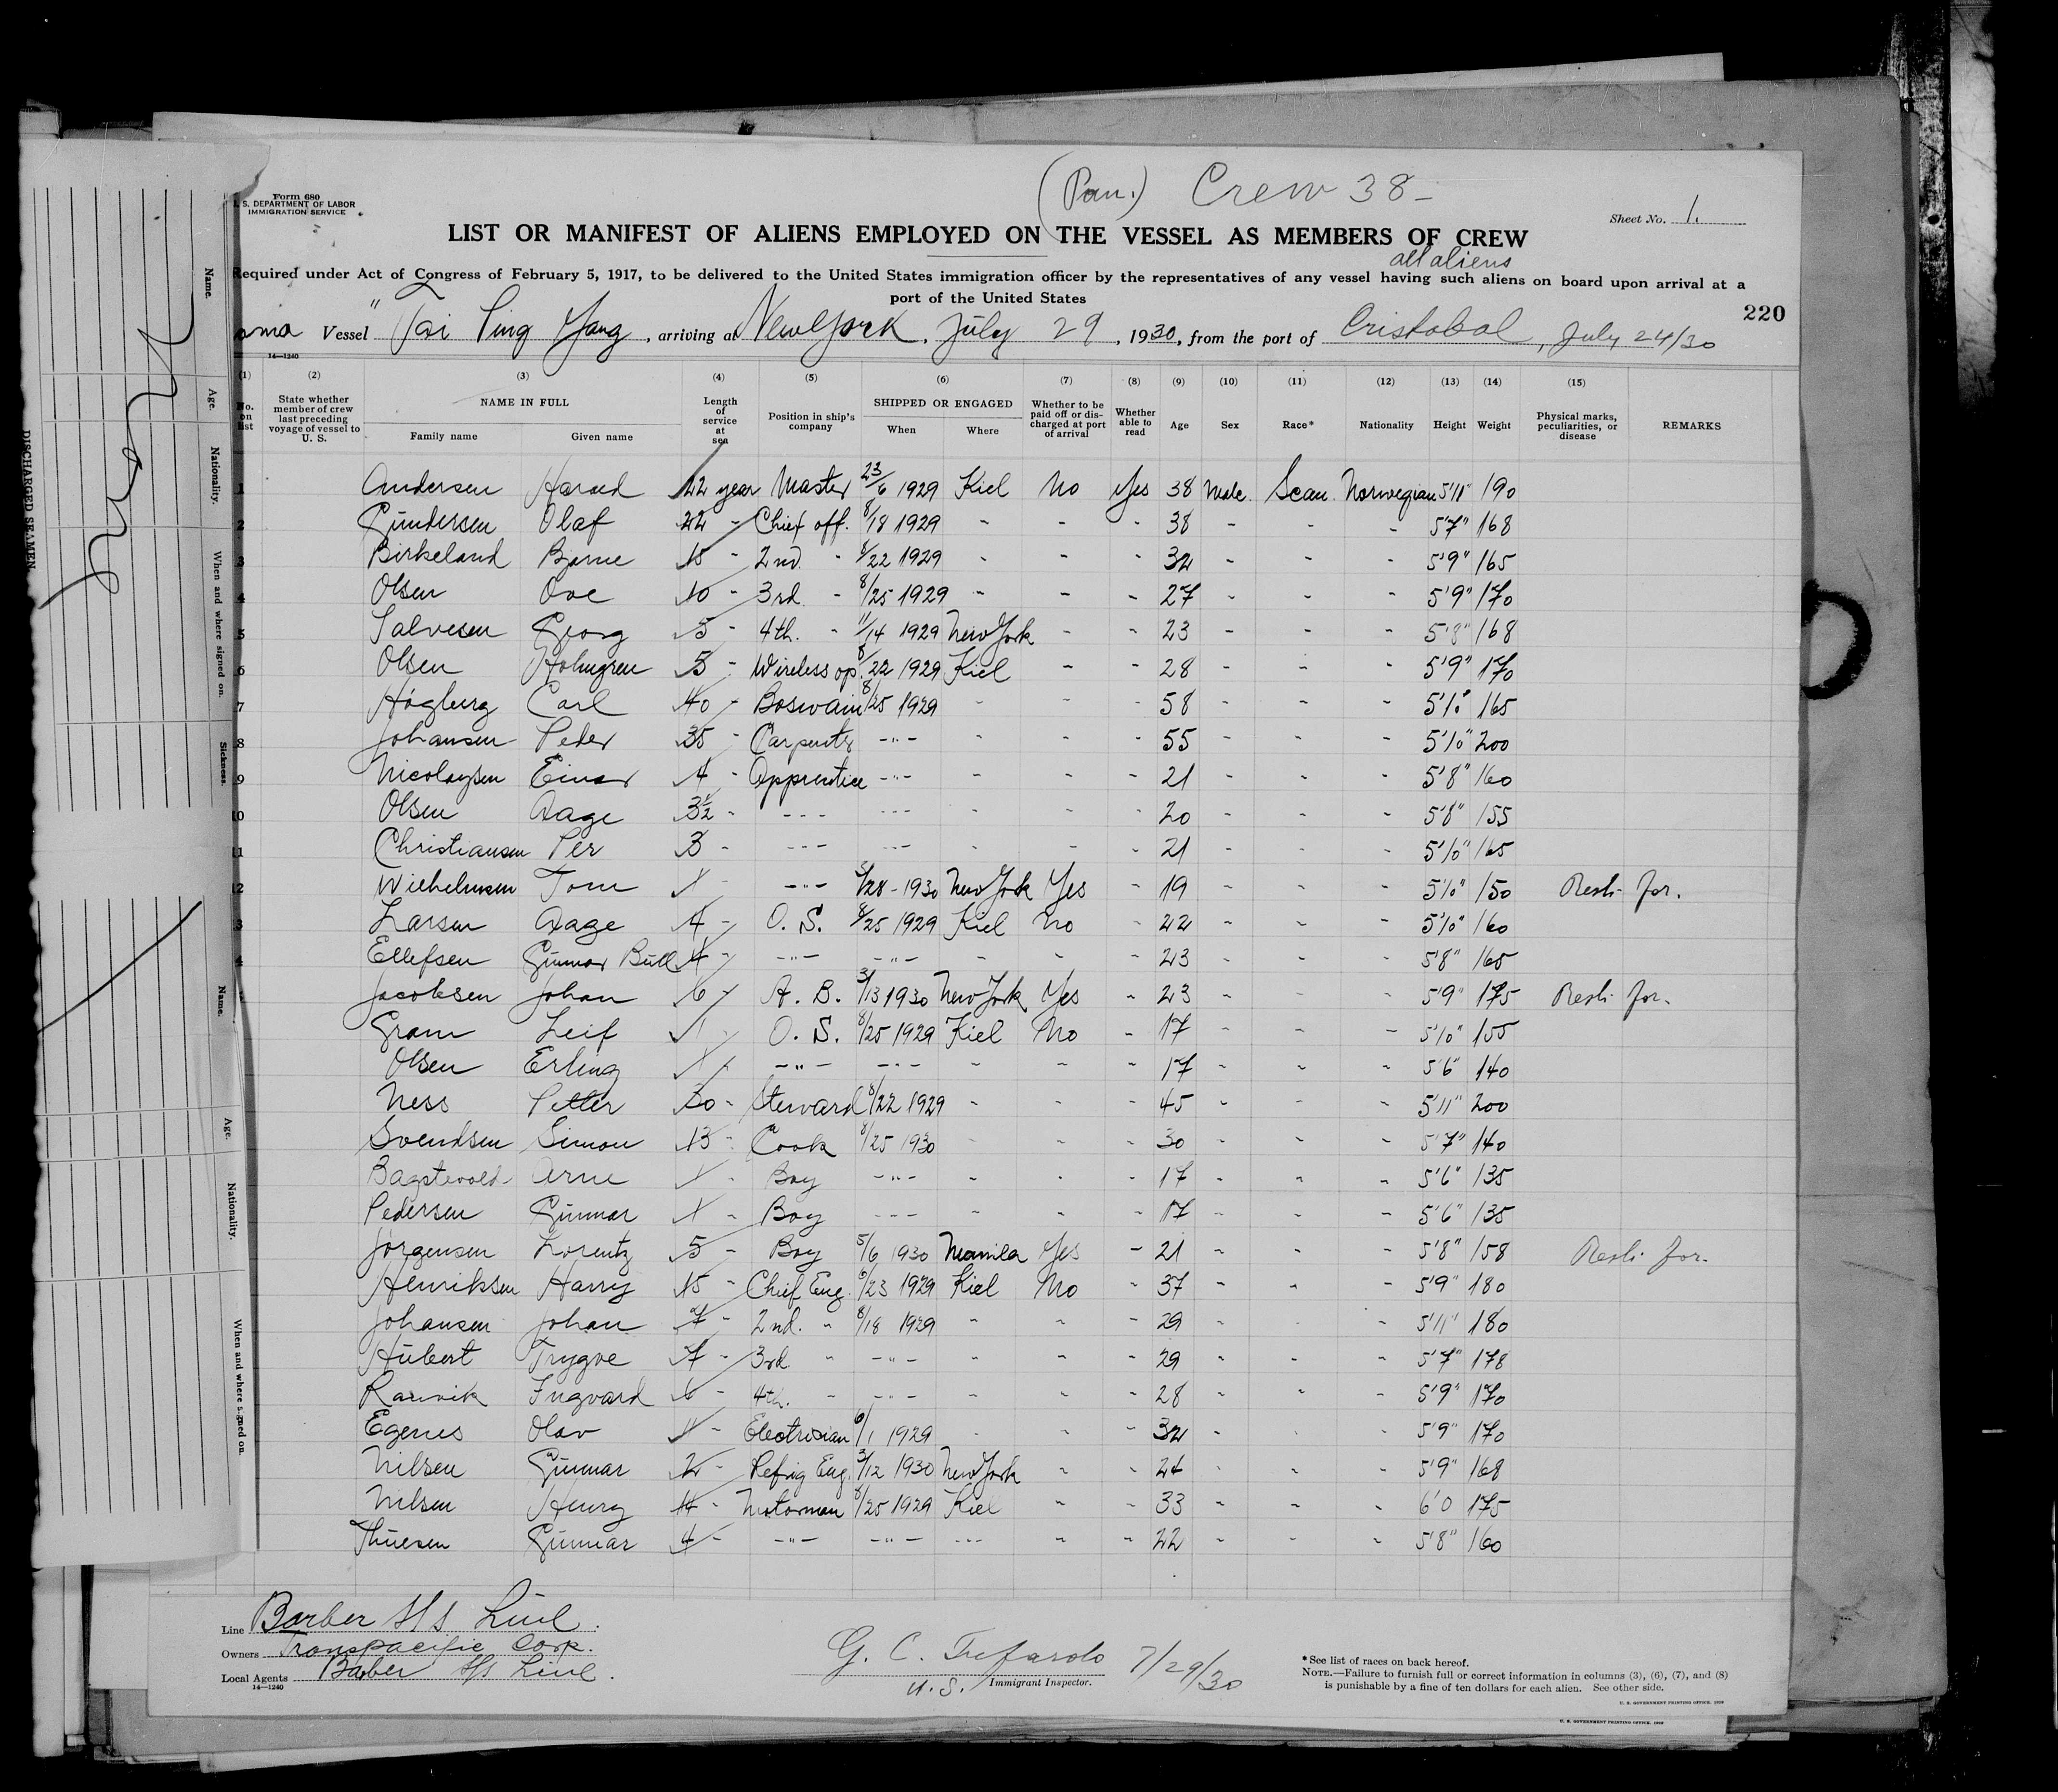 (Pan.) Crew 38-
Form 680
U. S. DEPARTMENT OF LABOR
IMMIGRATION SERVICE
Sheet No. 1.
LIST OR MANIFEST OF ALIENS EMPLOYED ON THE VESSEL AS MEMBERS OF CREW
all aliens
Required under Act of Congress of February 5, 1917, to be delivered to the United States immigration officer by the representatives of any vessel having such aliens on board upon arrival at a
port of the United States
220
Vessel "Tai Ping Yang, arriving at New York, July 29, 1930, from the port of Cristobal, July 24/30
14—1240
(1) (2) (3) (4) (5) (6) (7) (8) (9) (10) (11) (12) (13) (14) (15)
No. on list
State whether member of crew last preceding voyage of vessel to U. S.
NAME IN FULL
Family name Given name
Length of service at sea
Position in ship's company
SHIPPED OR ENGAGED
When Where
Whether to be paid off or discharged at port of arrival
Whether able to read
Age Sex Race* Nationality Height Weight
Physical marks, peculiarities, or disease
REMARKS
1 Andersen Harald 22 year Master 23/6 1929 Kiel No Yes 38 Male Scan. Norwegian 5'11" 190
2 Gundersen Olaf 22 - Chief off. 8/18 1929 - - - 38 - - - 5'7" 168
3 Birkeland Bjarne 15 - 2nd. - 8/22 1929 - - - 32 - - - 5'9" 165
4 Olsen Ove 10 - 3rd. - 8/25 1929 - - - 27 - - - 5'9" 170
5 Salvesen Georg 5 - 4th. - 11/14 1929 New York - - 23 - - - 5'8" 168
6 Olsen Holmgren 5 - Wireless op. 8/22 1929 Kiel - - 28 - - - 5'9" 170
7 Högberg Carl 40 - Boswain 8/25 1929 - - - 58 - - - 5'10" 165
8 Johansen Peder 35 - Carpentr -"- - - - 55 - - - 5'10" 200
9 Nicolaysen Einar 4 - Apprentice -"- - - - 21 - - - 5'8" 160
10 Olsen Aage 3½ - -"- -"- - - - 20 - - - 5'8" 155
11 Christiansen Per 3 - -"- -"- - - - 21 - - - 5'10" 165
12 Wilhelmsen Tom 1 - -"- 5/28-1930 New York Yes - 19 - - - 5'10" 150
3 Larsen Aage 4 - O. S. 8/25 1929 Kiel No - 22 - - - 5'10" 160
4 Ellefsen Gunnar Bull 4 - -"- -"- - - - 23 - - - 5'8" 165
Jacobsen Johan 6 - A. B. 3/13 1930 New York Yes - 23 - - - 5'9" 175
Gram Leif 1 - O. S. 8/25 1929 Kiel No - 17 - - - 5'10" 155
Olsen Erling 1 - -"- -"- - - - 17 - - - 5'6" 140
Ness Petter 30 - Steward 8/22 1929 - - - 45 - - - 5'11" 200
Svendsen Simon 13 - Cook 8/25 1930 - - - 30 - - - 5'7" 140
Arne 1 - Boy -"- - - - 17 - - - 5'6" 135
Pedersen Gunnar 1 - Boy -"- - - - 17 - - - 5'6" 135
Jørgensen Lorentz 5 - Boy 5/6 1930 Manila Yes - 21 - - - 5'8" 158
Henriksen Harry 15 - Chief Eng. 6/23 1929 Kiel No - 37 - - - 5'9" 180
Johansen Johan 7 - 2nd. - 8/18 1929 - - - 29 - - - 5'11" 180
Hubert Trygve 7 - 3rd - -"- - - - 29 - - - 5'7" 178
Ingvard 6 - 4th. - -"- - - - 28 - - - 5'9" 170
Egenes Olav - Electrician 6/1 1929 - - - 32 - - - 5'9" 170
Nilsen Gunnar 2 - Refrig Eng. 3/12 1930 New York - - 24 - - - 5'9" 168
Nilsen Henry 14 - Motorman 8/25 1929 Kiel - - 33 - - - 6'0 175
Thuesen Gunnar 4 - -"- -"- -"- - - 22 - - - 5'8" 160
Line Barber S/S Line.
Owners Transpacific Corp.
Local Agents Barber S/S Line.
14—1240
G. C. Trefardo 7/29/30
U.S. Immigrant Inspector.
*See list of races on back hereof.
NOTE.—Failure to furnish full or correct information in columns (3), (6), (7), and (8)
is punishable by a fine of ten dollars for each alien. See other side.
U. S. GOVERNMENT PRINTING OFFICE
U. S. GOVERNMENT PRINTING OFFICE
DISCHARGED SEAMEN
Name.
Age.
Nationality.
When and where signed on.
Sickness.
Name.
Age.
Nationality.
When and where signed on.